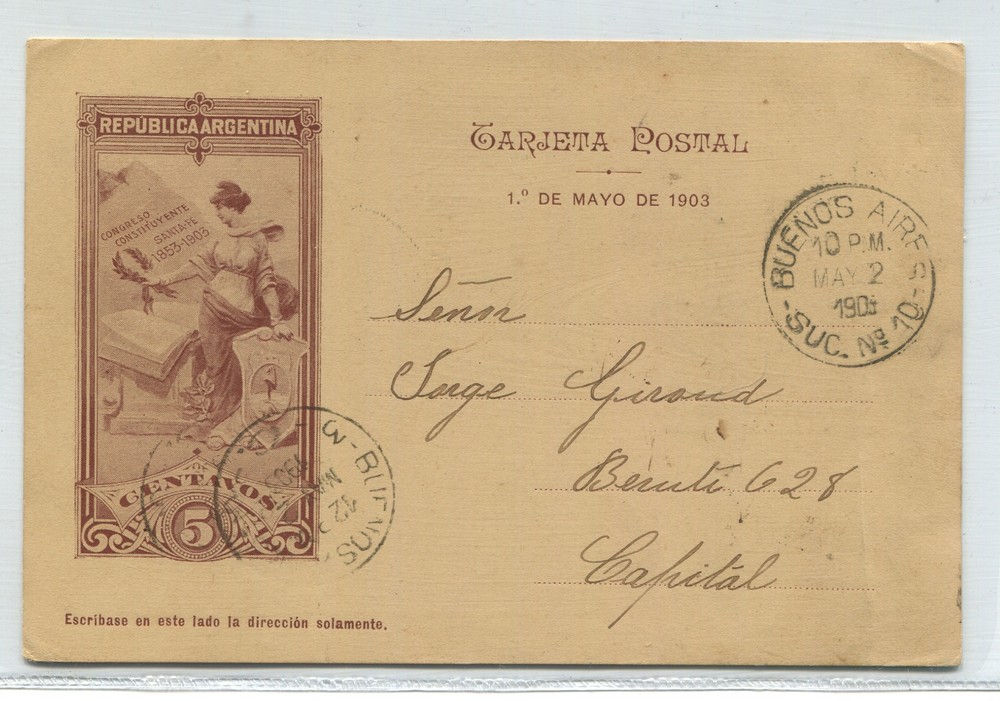 REPÚBLICA ARGENTINA
CONGRESO
CONSTITUYENTE
SANTA-FE
1853-1903
CENTAVOS
5
TARJETA POSTAL
1.º DE MAYO DE 1903
BUENOS AIRES
10 P.M.
MAY 2
SUC. Nº 10
Señor
Jorge Giroud
Beruti 628
Capital
BUENOS
12
Escríbase en este lado la dirección solamente.